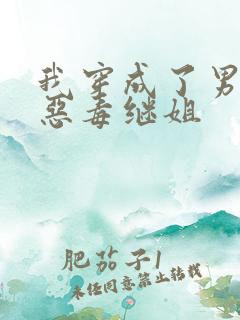 我穿成了男
恶毒继姐
肥茄子1
未经同意禁止转载